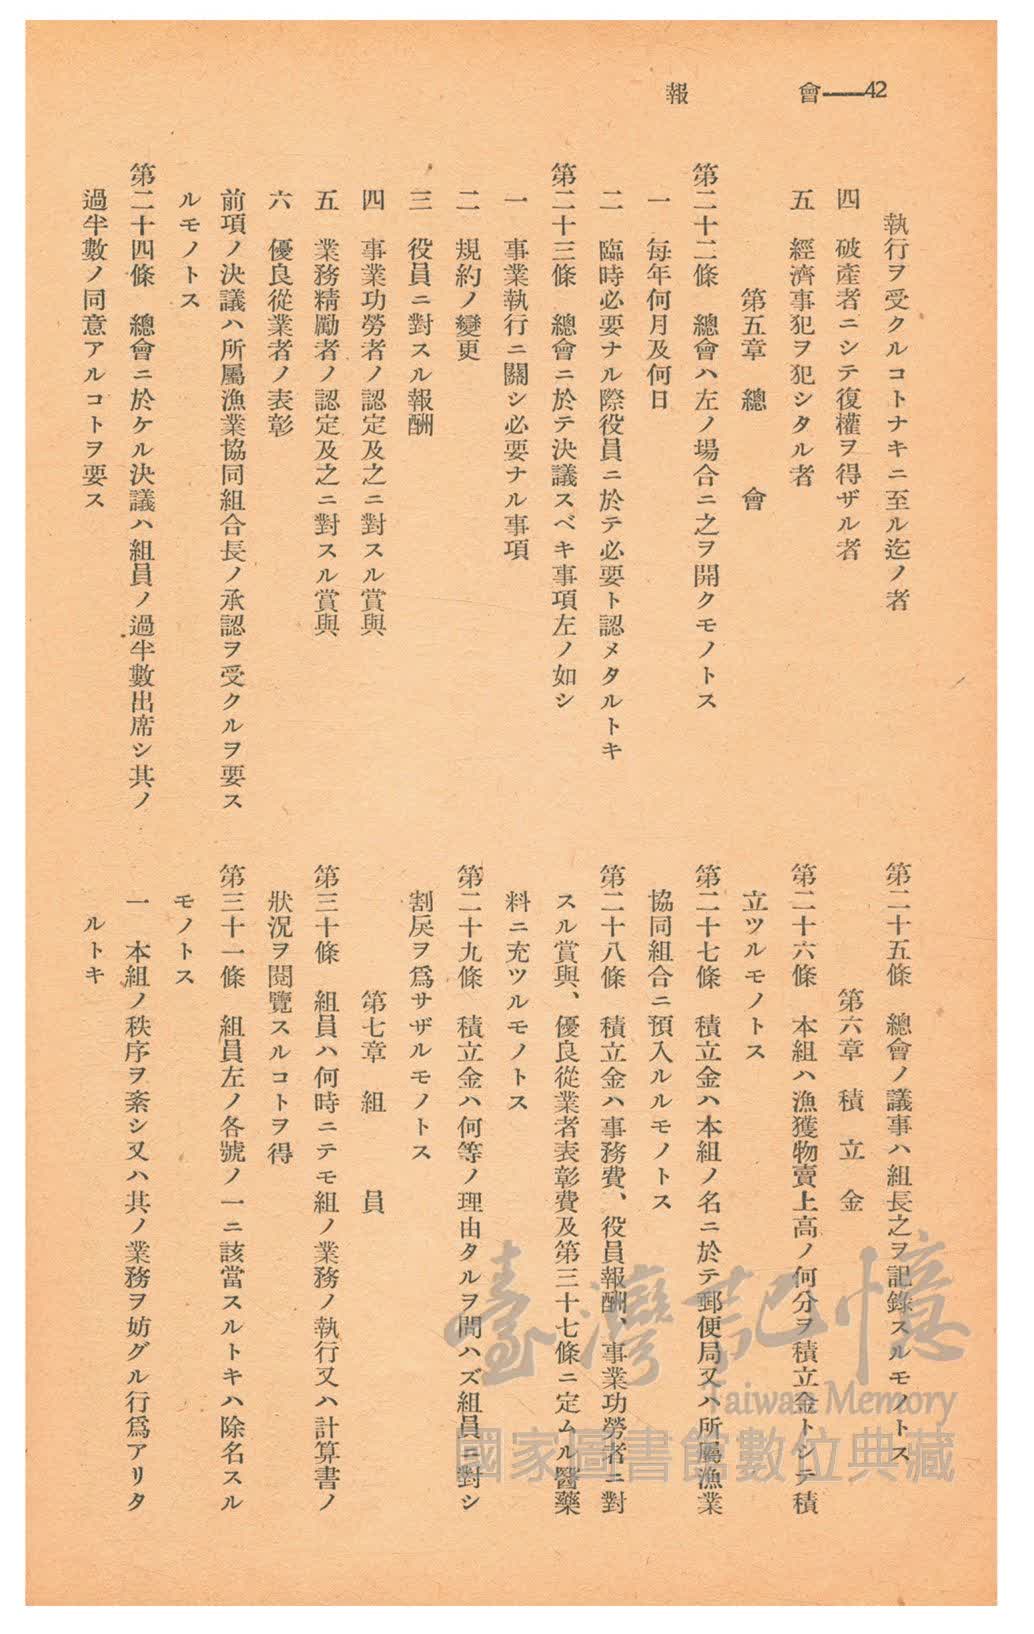 會——42
報
執行ヲ受クルコトナキニ至ル迄ノ者
四　破產者ニシテ復權ヲ得ザル者
五　經濟事犯ヲ犯シタル者
第五章　總　會
第二十二條　總會ハ左ノ場合ニ之ヲ開クモノトス
一　每年何月及何日
二　臨時必要ナル際役員ニ於テ必要ト認メタルトキ
第二十三條　總會ニ於テ決議スベキ事項左ノ如シ
一　事業執行ニ關シ必要ナル事項
二　規約ノ變更
三　役員ニ對スル報酬
四　事業功勞者ノ認定及之ニ對スル賞與
五　業務精勵者ノ認定及之ニ對スル賞與
六　優良從業者ノ表彰
前項ノ決議ハ所屬漁業協同組合長ノ承認ヲ受クルヲ要ス
ルモノトス
第二十四條　總會ニ於ケル決議ハ組員ノ過半數出席シ其ノ
過半數ノ同意アルコトヲ要ス
第二十五條　總會ノ議事ハ組長之ヲ記錄スルモノトス
第六章　積　立　金
第二十六條　本組ハ漁獲物賣上高ノ何分ヲ積立金トシテ積
立ツルモノトス
第二十七條　積立金ハ本組ノ名ニ於テ郵便局又ハ所屬漁業
協同組合ニ預入ルルモノトス
第二十八條　積立金ハ事務費、役員報酬、事業功勞者ニ對
スル賞與、優良從業者表彰費及第三十七條ニ定ムル醫藥
料ニ充ツルモノトス
第二十九條　積立金ハ何等ノ理由タルヲ問ハズ組員ニ對シ
割戾ヲ爲サザルモノトス
第七章　組　員
第三十條　組員ハ何時ニテモ組ノ業務ノ執行又ハ計算書ノ
狀況ヲ閱覽スルコトヲ得
第三十一條　組員左ノ各號ノ一ニ該當スルトキハ除名スル
モノトス
一　本組ノ秩序ヲ紊シ又ハ其ノ業務ヲ妨グル行爲アリタ
ルトキ
臺灣記憶
Taiwan Memory
國家圖書館數位典藏